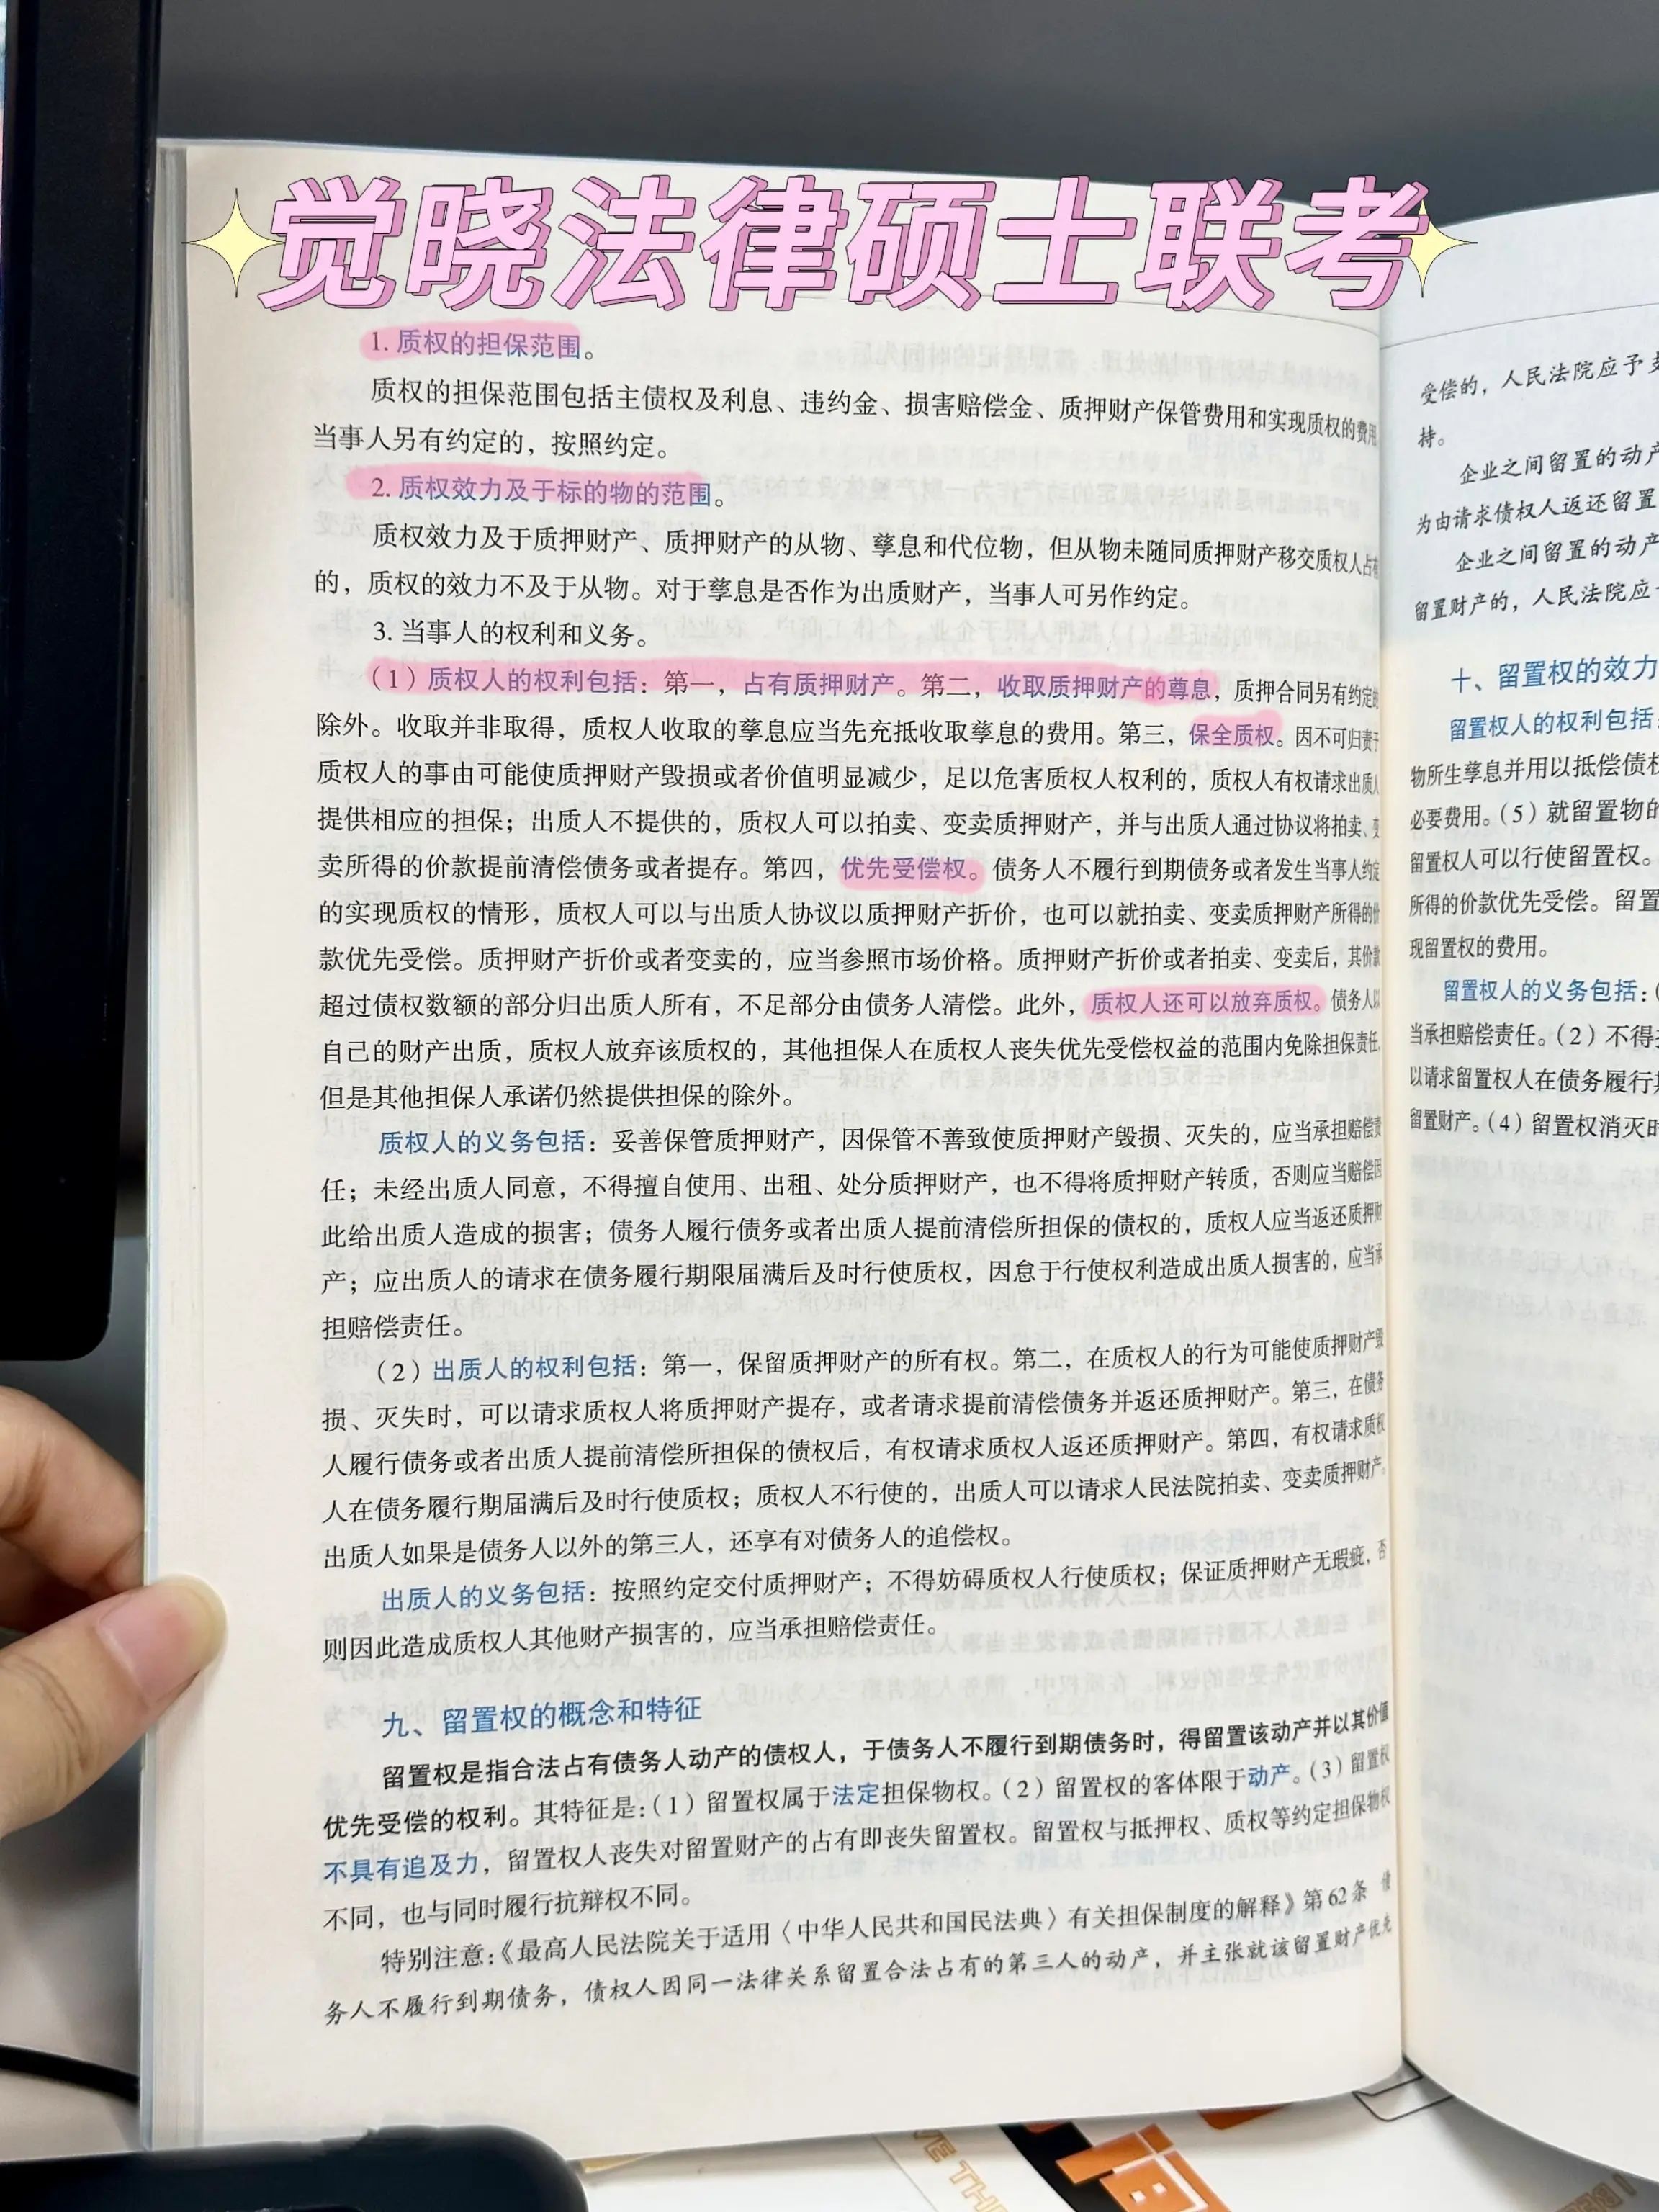 觉晓法律硕士联考
1. 质权的担保范围。
质权的担保范围包括主债权及利息、违约金、损害赔偿金、质押财产保管费用和实现质权的费用
当事人另有约定的，按照约定。
2. 质权效力及于标的物的范围。
质权效力及于质押财产、质押财产的从物、孳息和代位物，但从物未随同质押财产移交质权人占有
的，质权的效力不及于从物。对于孳息是否作为出质财产，当事人可另作约定。
3. 当事人的权利和义务。
（1）质权人的权利包括：第一，占有质押财产。第二，收取质押财产的尊息，质押合同另有约定的
除外。收取并非取得，质权人收取的孳息应当先充抵收取孳息的费用。第三，保全质权。因不可归责于
质权人的事由可能使质押财产毁损或者价值明显减少，足以危害质权人权利的，质权人有权请求出质人
提供相应的担保；出质人不提供的，质权人可以拍卖、变卖质押财产，并与出质人通过协议将拍卖、变
卖所得的价款提前清偿债务或者提存。第四，优先受偿权。债务人不履行到期债务或者发生当事人约定
的实现质权的情形，质权人可以与出质人协议以质押财产折价，也可以就拍卖、变卖质押财产所得的价
款优先受偿。质押财产折价或者变卖的，应当参照市场价格。质押财产折价或者拍卖、变卖后，其价款
超过债权数额的部分归出质人所有，不足部分由债务人清偿。此外，质权人还可以放弃质权。债务人以
自己的财产出质，质权人放弃该质权的，其他担保人在质权人丧失优先受偿权益的范围内免除担保责任，
但是其他担保人承诺仍然提供担保的除外。
质权人的义务包括：妥善保管质押财产，因保管不善致使质押财产毁损、灭失的，应当承担赔偿责
任；未经出质人同意，不得擅自使用、出租、处分质押财产，也不得将质押财产转质，否则应当赔偿因
此给出质人造成的损害；债务人履行债务或者出质人提前清偿所担保的债权的，质权人应当返还质押财
产；应出质人的请求在债务履行期限届满后及时行使质权，因怠于行使权利造成出质人损害的，应当承
担赔偿责任。
（2）出质人的权利包括：第一，保留质押财产的所有权。第二，在质权人的行为可能使质押财产毁
损、灭失时，可以请求质权人将质押财产提存，或者请求提前清偿债务并返还质押财产。第三，在债务
人履行债务或者出质人提前清偿所担保的债权后，有权请求质权人返还质押财产。第四，有权请求质权
人在债务履行期届满后及时行使质权；质权人不行使的，出质人可以请求人民法院拍卖、变卖质押财产。
出质人如果是债务人以外的第三人，还享有对债务人的追偿权。
出质人的义务包括：按照约定交付质押财产；不得妨碍质权人行使质权；保证质押财产无瑕疵，否
则因此造成质权人其他财产损害的，应当承担赔偿责任。
九、留置权的概念和特征
留置权是指合法占有债务人动产的债权人，于债务人不履行到期债务时，得留置该动产并以其价值
优先受偿的权利。其特征是：（1）留置权属于法定担保物权。（2）留置权的客体限于动产。（3）留置权
不具有追及力，留置权人丧失对留置财产的占有即丧失留置权。留置权与抵押权、质权等约定担保物权
不同，也与同时履行抗辩权不同。
特别注意：《最高人民法院关于适用〈中华人民共和国民法典〉有关担保制度的解释》第62条 债
务人不履行到期债务，债权人因同一法律关系留置合法占有的第三人的动产，并主张就该留置财产优先
受偿的，人民法院应予支
持。
企业之间留置的动产
为由请求债权人返还留置
企业之间留置的动产
留置财产的，人民法院应
十、留置权的效力
留置权人的权利包括：
物所生孳息并用以抵偿债权
必要费用。（5）就留置物的
留置权人可以行使留置权。
所得的价款优先受偿。留置
现留置权的费用。
留置权人的义务包括：（
当承担赔偿责任。（2）不得
以请求留置权人在债务履行期
留置财产。（4）留置权消灭时